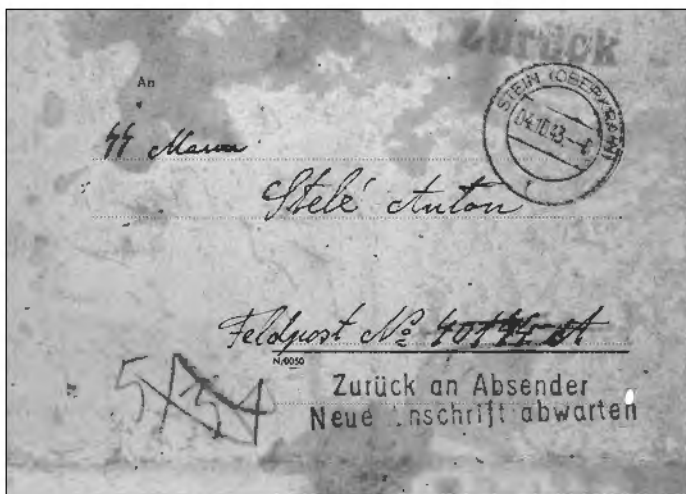 Zurück
STEIN (OBERKRAIN)
04.10.43.
An
SS Mann
Stelé Anton
Feldpost No
N/0050
Zurück an Absender
Neue nschrift abwarten